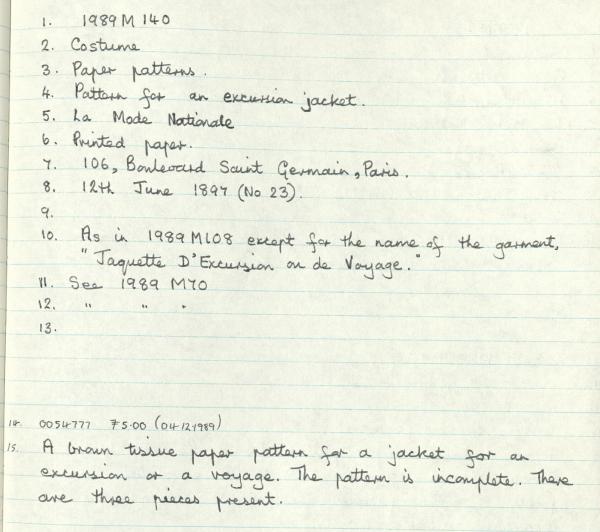 1. 1989 M 140
2. Costume
3. Paper patterns.
4. Pattern for an excursion jacket.
5. La Mode Nationale
6. Printed paper.
7. 106, Boulevard Saint Germain, Paris.
8. 12th June 1897 (No 23).
9.
10. As in 1989 M108 except for the name of the garment,
"Jaquette D'Excursion ou de Voyage."
11. See 1989 M70
12. " " "
13.
14. 0054777 75.00 (04.12.1989)
15. A brown tissue paper pattern for a jacket for an
excursion or a voyage. The pattern is incomplete. There
are three pieces present.